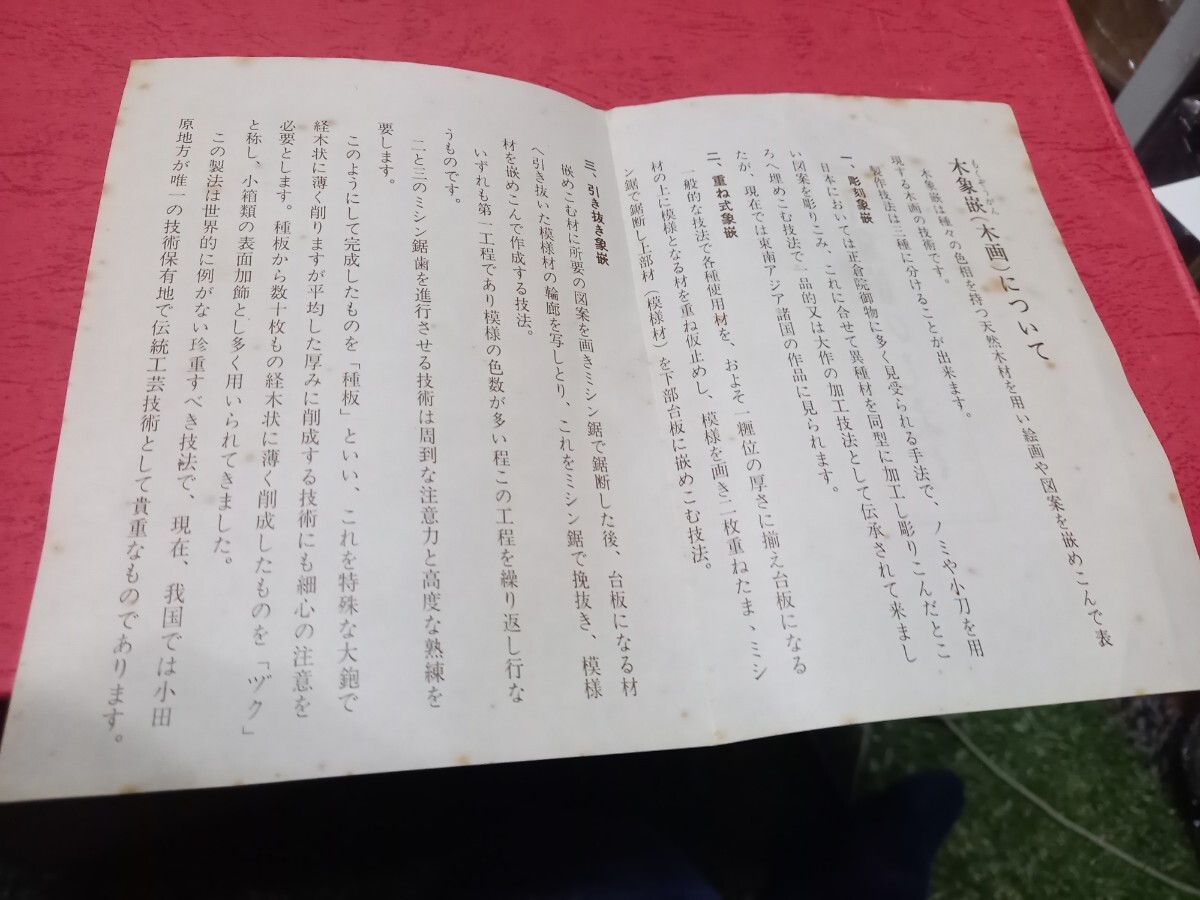 もくぞうがん
木象嵌(木画)について
木象嵌は種々の色相を持つ天然木材を用い絵画や図案を嵌めこんで表
現する木画の技術です。
製作技法は三種に分けることが出来ます。
一、彫刻象嵌
日本においては正倉院御物に多く見受られる手法で、ノミや小刀を用
い図案を彫りこみ、これに合せて異種材を同型に加工し彫りこんだとこ
ろへ埋めこむ技法で一品的又は大作の加工技法として伝承されて来まし
たが、現在では東南アジア諸国の作品に見られます。
二、重ね式象嵌
一般的な技法で各種使用材を、およそ一糎位の厚さに揃え台板になる
材の上に模様となる材を重ね仮止めし、模様を画き二枚重ねたまゝミシ
ン鋸で鋸断し上部材(模様材)を下部台板に嵌めこむ技法。
三、引き抜き象嵌
嵌めこむ材に所要の図案を画きミシン鋸で鋸断した後、台板になる材
へ引き抜いた模様材の輪廊を写しとり、これをミシン鋸で挽抜き、模様
材を嵌めこんで作成する技法。
いずれも第一工程であり模様の色数が多い程この工程を繰り返し行な
うものです。
二と三のミシン鋸歯を進行させる技術は周到な注意力と高度な熟練を
要します。
このようにして完成したものを「種板」といい、これを特殊な大鉋で
経木状に薄く削りますが平均した厚みに削成する技術にも細心の注意を
必要とします。種板から数十枚もの経木状に薄く削成したものを「ヅク」
と称し、小箱類の表面加飾とし多く用いられてきました。
この製法は世界的に例がない珍重すべき技法で、現在、我国では小田
原地方が唯一の技術保有地で伝統工芸技術として貴重なものであります。